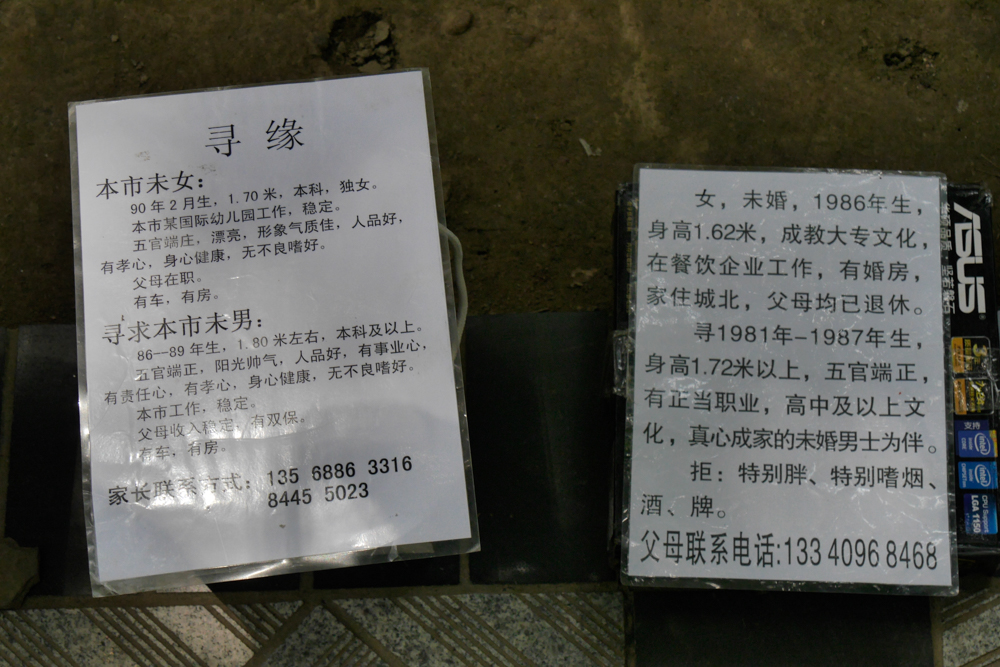 寻 缘
本市未女：
90年2月生，1.70米，本科，独女。
本市某国际幼儿园工作，稳定。
五官端庄，漂亮，形象气质佳，人品好，
有孝心，身心健康，无不良嗜好。
父母在职。
有车，有房。
寻求本市未男：
86--89年生，1.80米左右，本科及以上。
五官端正，阳光帅气，人品好，有事业心，
有责任心，有孝心，身心健康，无不良嗜好。
本市工作，稳定。
父母收入稳定，有双保。
有车，有房。
家长联系方式：135 6886 3316
8445 5023
女，未婚，1986年生，
身高1.62米，成教大专文化，
在餐饮企业工作，有婚房，
家住城北，父母均已退休。
寻1981年-1987年生，
身高1.72米以上，五官端正，
有正当职业，高中及以上文
化，真心成家的未婚男士为伴。
拒：特别胖、特别嗜烟、
酒、牌。
父母联系电话:133 4096 8468
ASUS
支持
intel
intel
CPU Support
LGA 1150